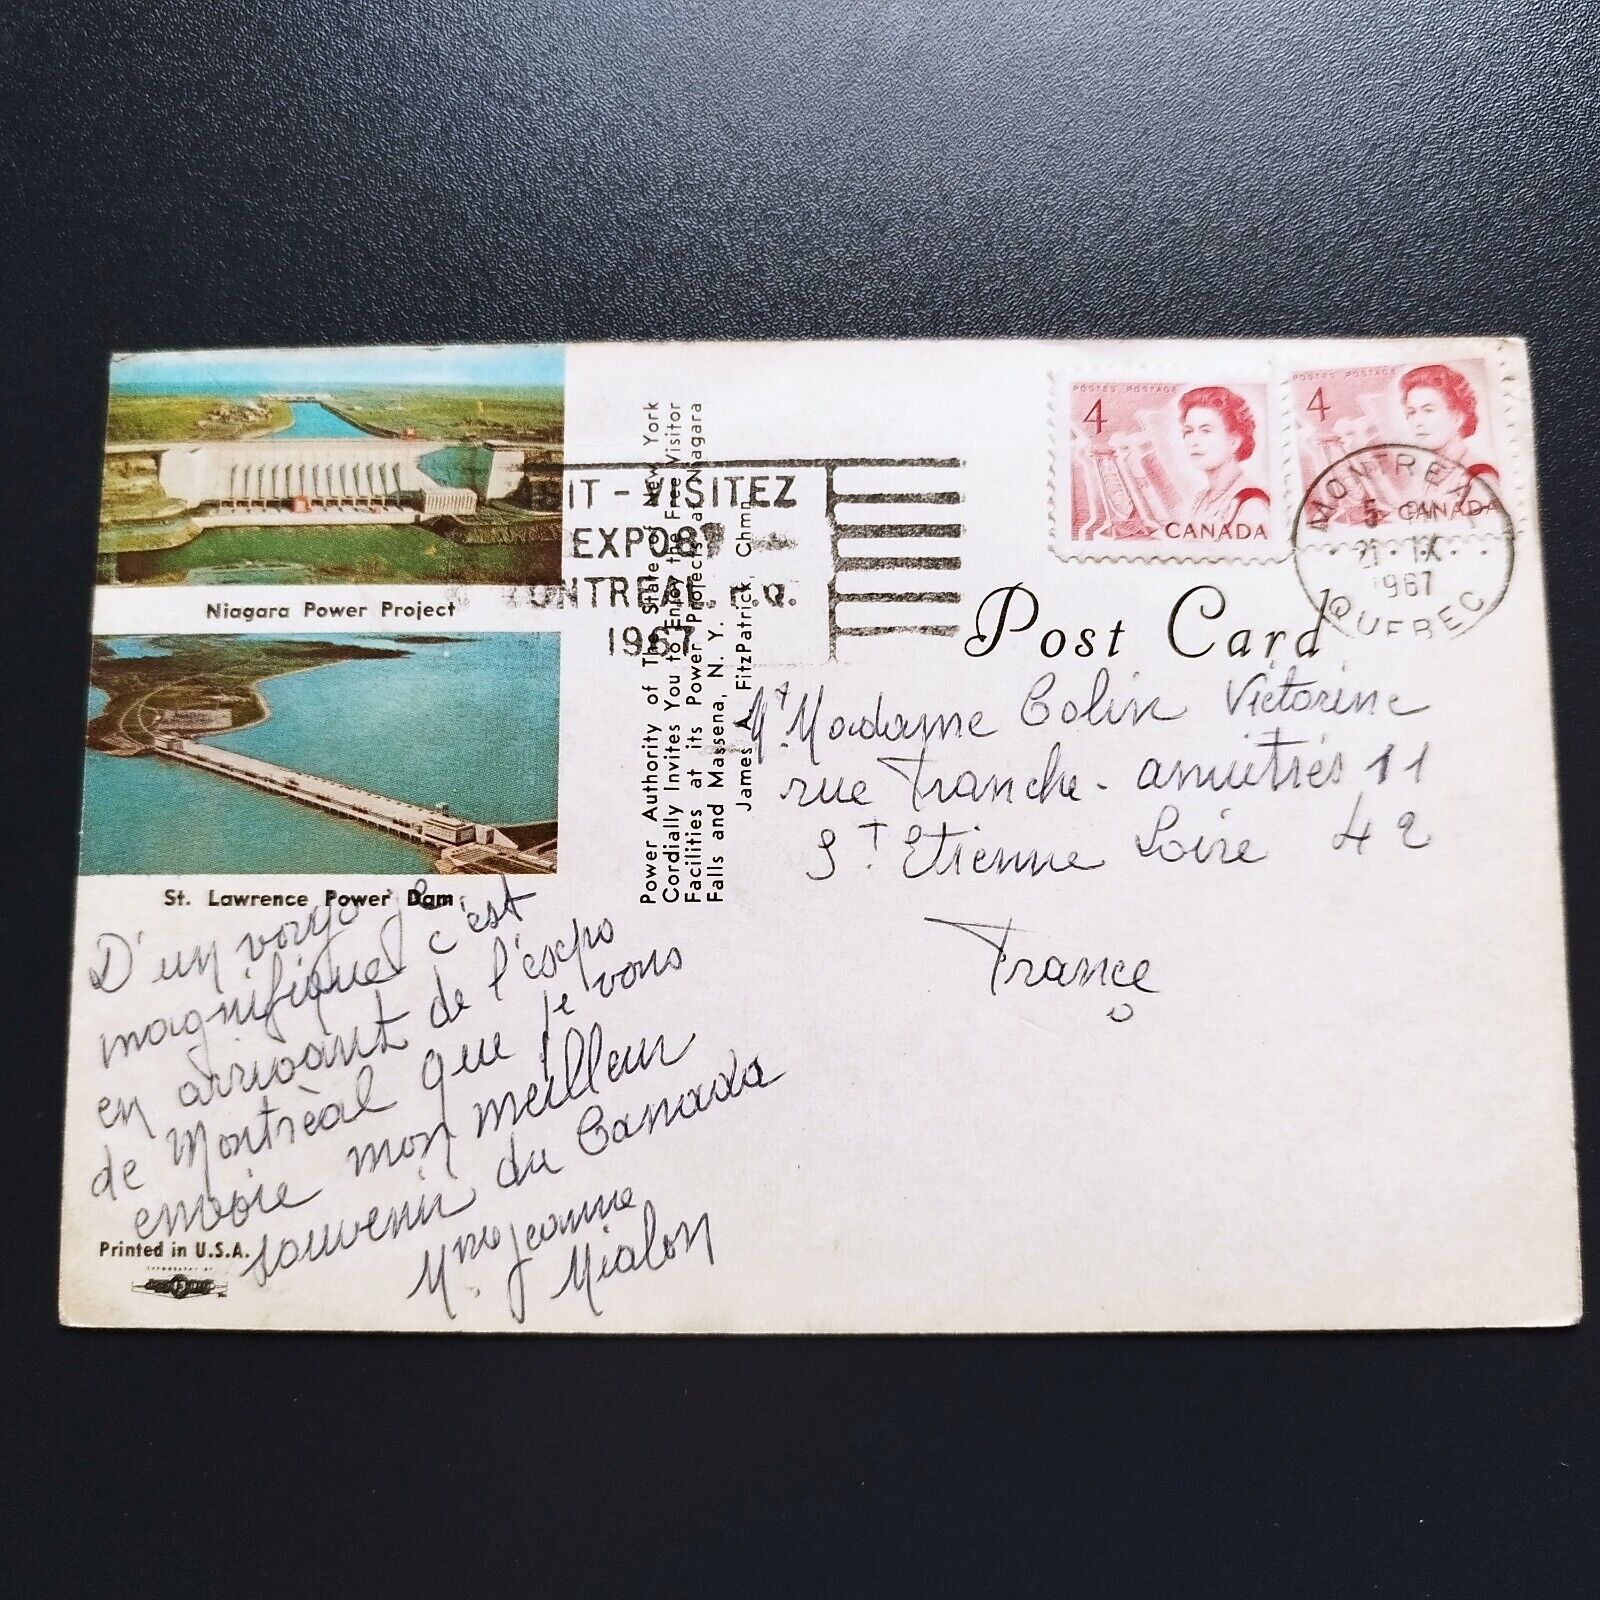 Niagara Power Project
St. Lawrence Power Dam
Power Authority of The State of New York
Cordially Invites You to Enjoy the Free Visitor
Facilities at its Power Projects at Niagara
Falls and Massena, N. Y.
James A. FitzPatrick, Chmn.
SIT - VISITEZ
EXPO67
MONTREAL P.Q.
1967
POSTES POSTAGE
4
CANADA
POSTES POSTAGE
4
CANADA
MONTREAL
5 PM
21 IX
1967
QUEBEC
Post Card
Mt. Madame Colin Victorine
rue Franche-amitiés 11
St Etienne Loire 42
France
D'un voyage
magnifique c'est
en arrivant de l'expo
de Montrèal que je vous
envoie mon meilleur
souvenir du Canada
Mme Jeanne
Mialon
Printed in U.S.A.